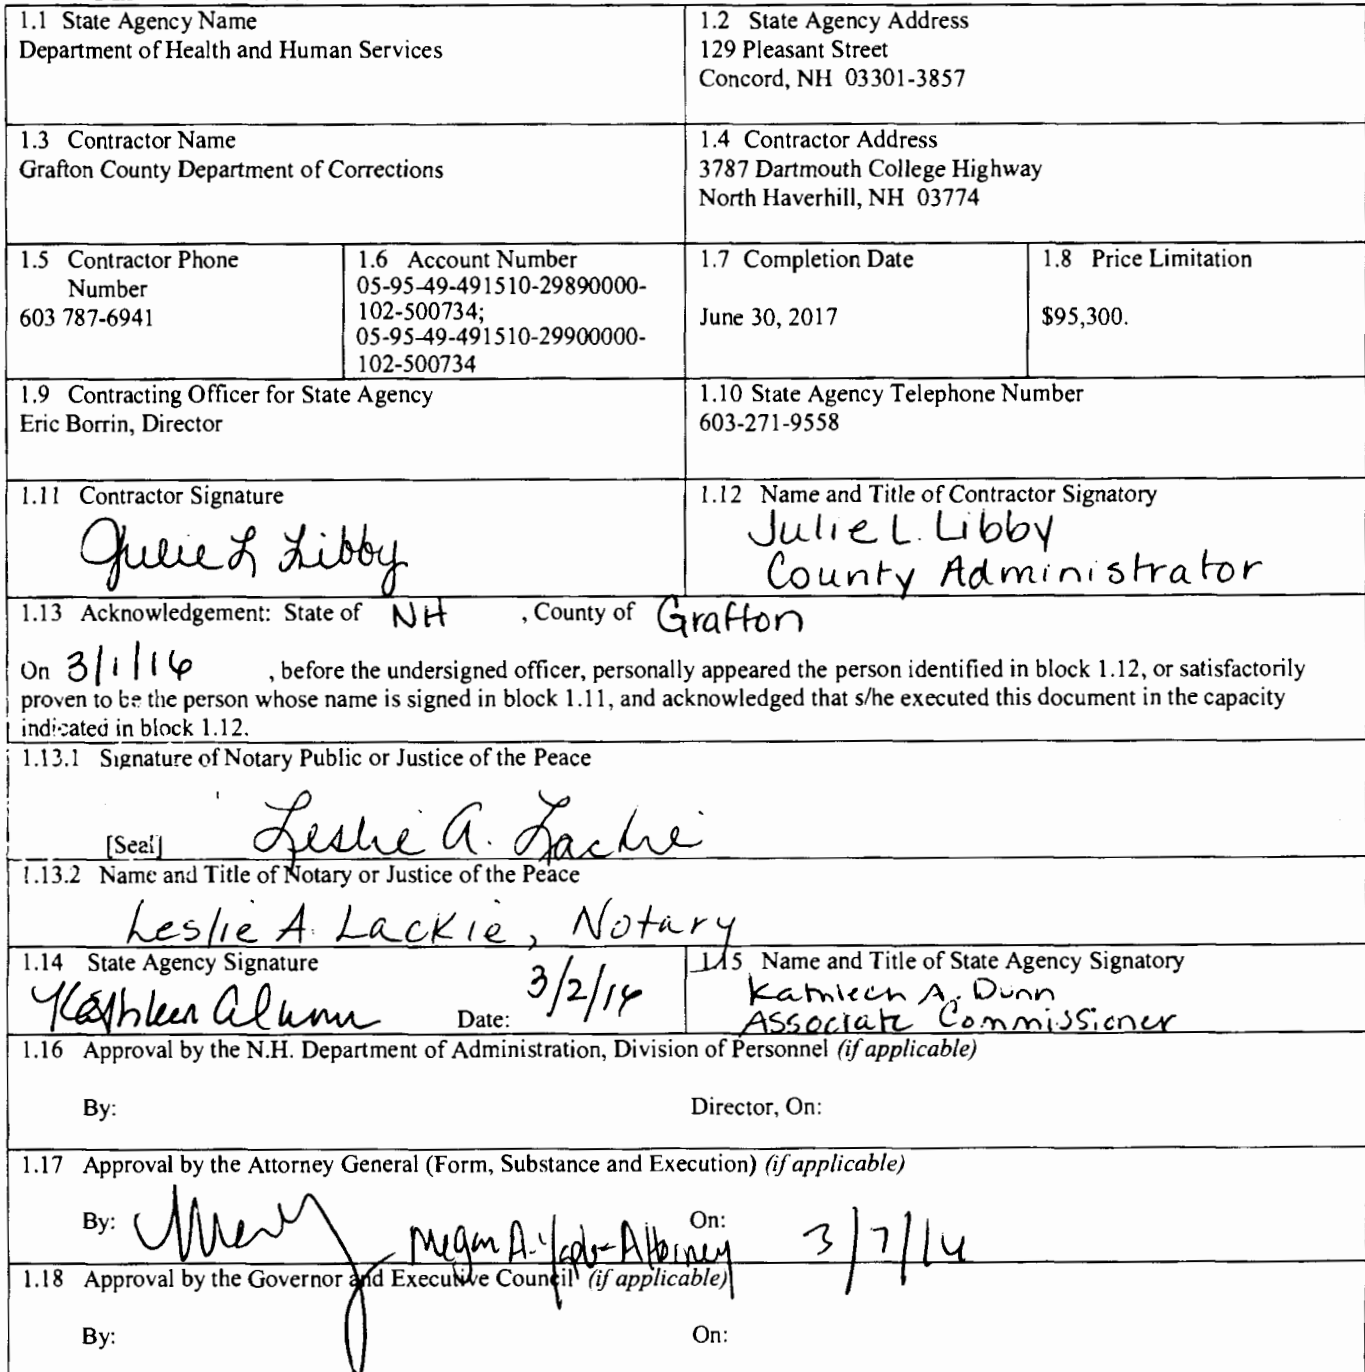 1.1 State Agency Name
Department of Health and Human Services
1.2 State Agency Address
129 Pleasant Street
Concord, NH 03301-3857
1.3 Contractor Name
Grafton County Department of Corrections
1.4 Contractor Address
3787 Dartmouth College Highway
North Haverhill, NH 03774
1.5 Contractor Phone
Number
603 787-6941
1.6 Account Number
05-95-49-491510-29890000-
102-500734;
05-95-49-491510-29900000-
102-500734
1.7 Completion Date
June 30, 2017
1.8 Price Limitation
$95,300.
1.9 Contracting Officer for State Agency
Eric Borrin, Director
1.10 State Agency Telephone Number
603-271-9558
1.11 Contractor Signature
Julie L Libby
1.12 Name and Title of Contractor Signatory
Julie L. Libby
County Administrator
1.13 Acknowledgement: State of NH , County of Grafton
On 3/1/16 , before the undersigned officer, personally appeared the person identified in block 1.12, or satisfactorily
proven to be the person whose name is signed in block 1.11, and acknowledged that s/he executed this document in the capacity
indicated in block 1.12.
1.13.1 Signature of Notary Public or Justice of the Peace
[Seal] Leslie A. Lackie
1.13.2 Name and Title of Notary or Justice of the Peace
Leslie A. Lackie, Notary
1.14 State Agency Signature
Kathleen A Dunn Date: 3/2/16
1.15 Name and Title of State Agency Signatory
Kathleen A. Dunn
Associate Commissioner
1.16 Approval by the N.H. Department of Administration, Division of Personnel (if applicable)
By: Director, On:
1.17 Approval by the Attorney General (Form, Substance and Execution) (if applicable)
By: Megan A. - Attorney On: 3/7/16
1.18 Approval by the Governor and Executive Council (if applicable)
By: On: